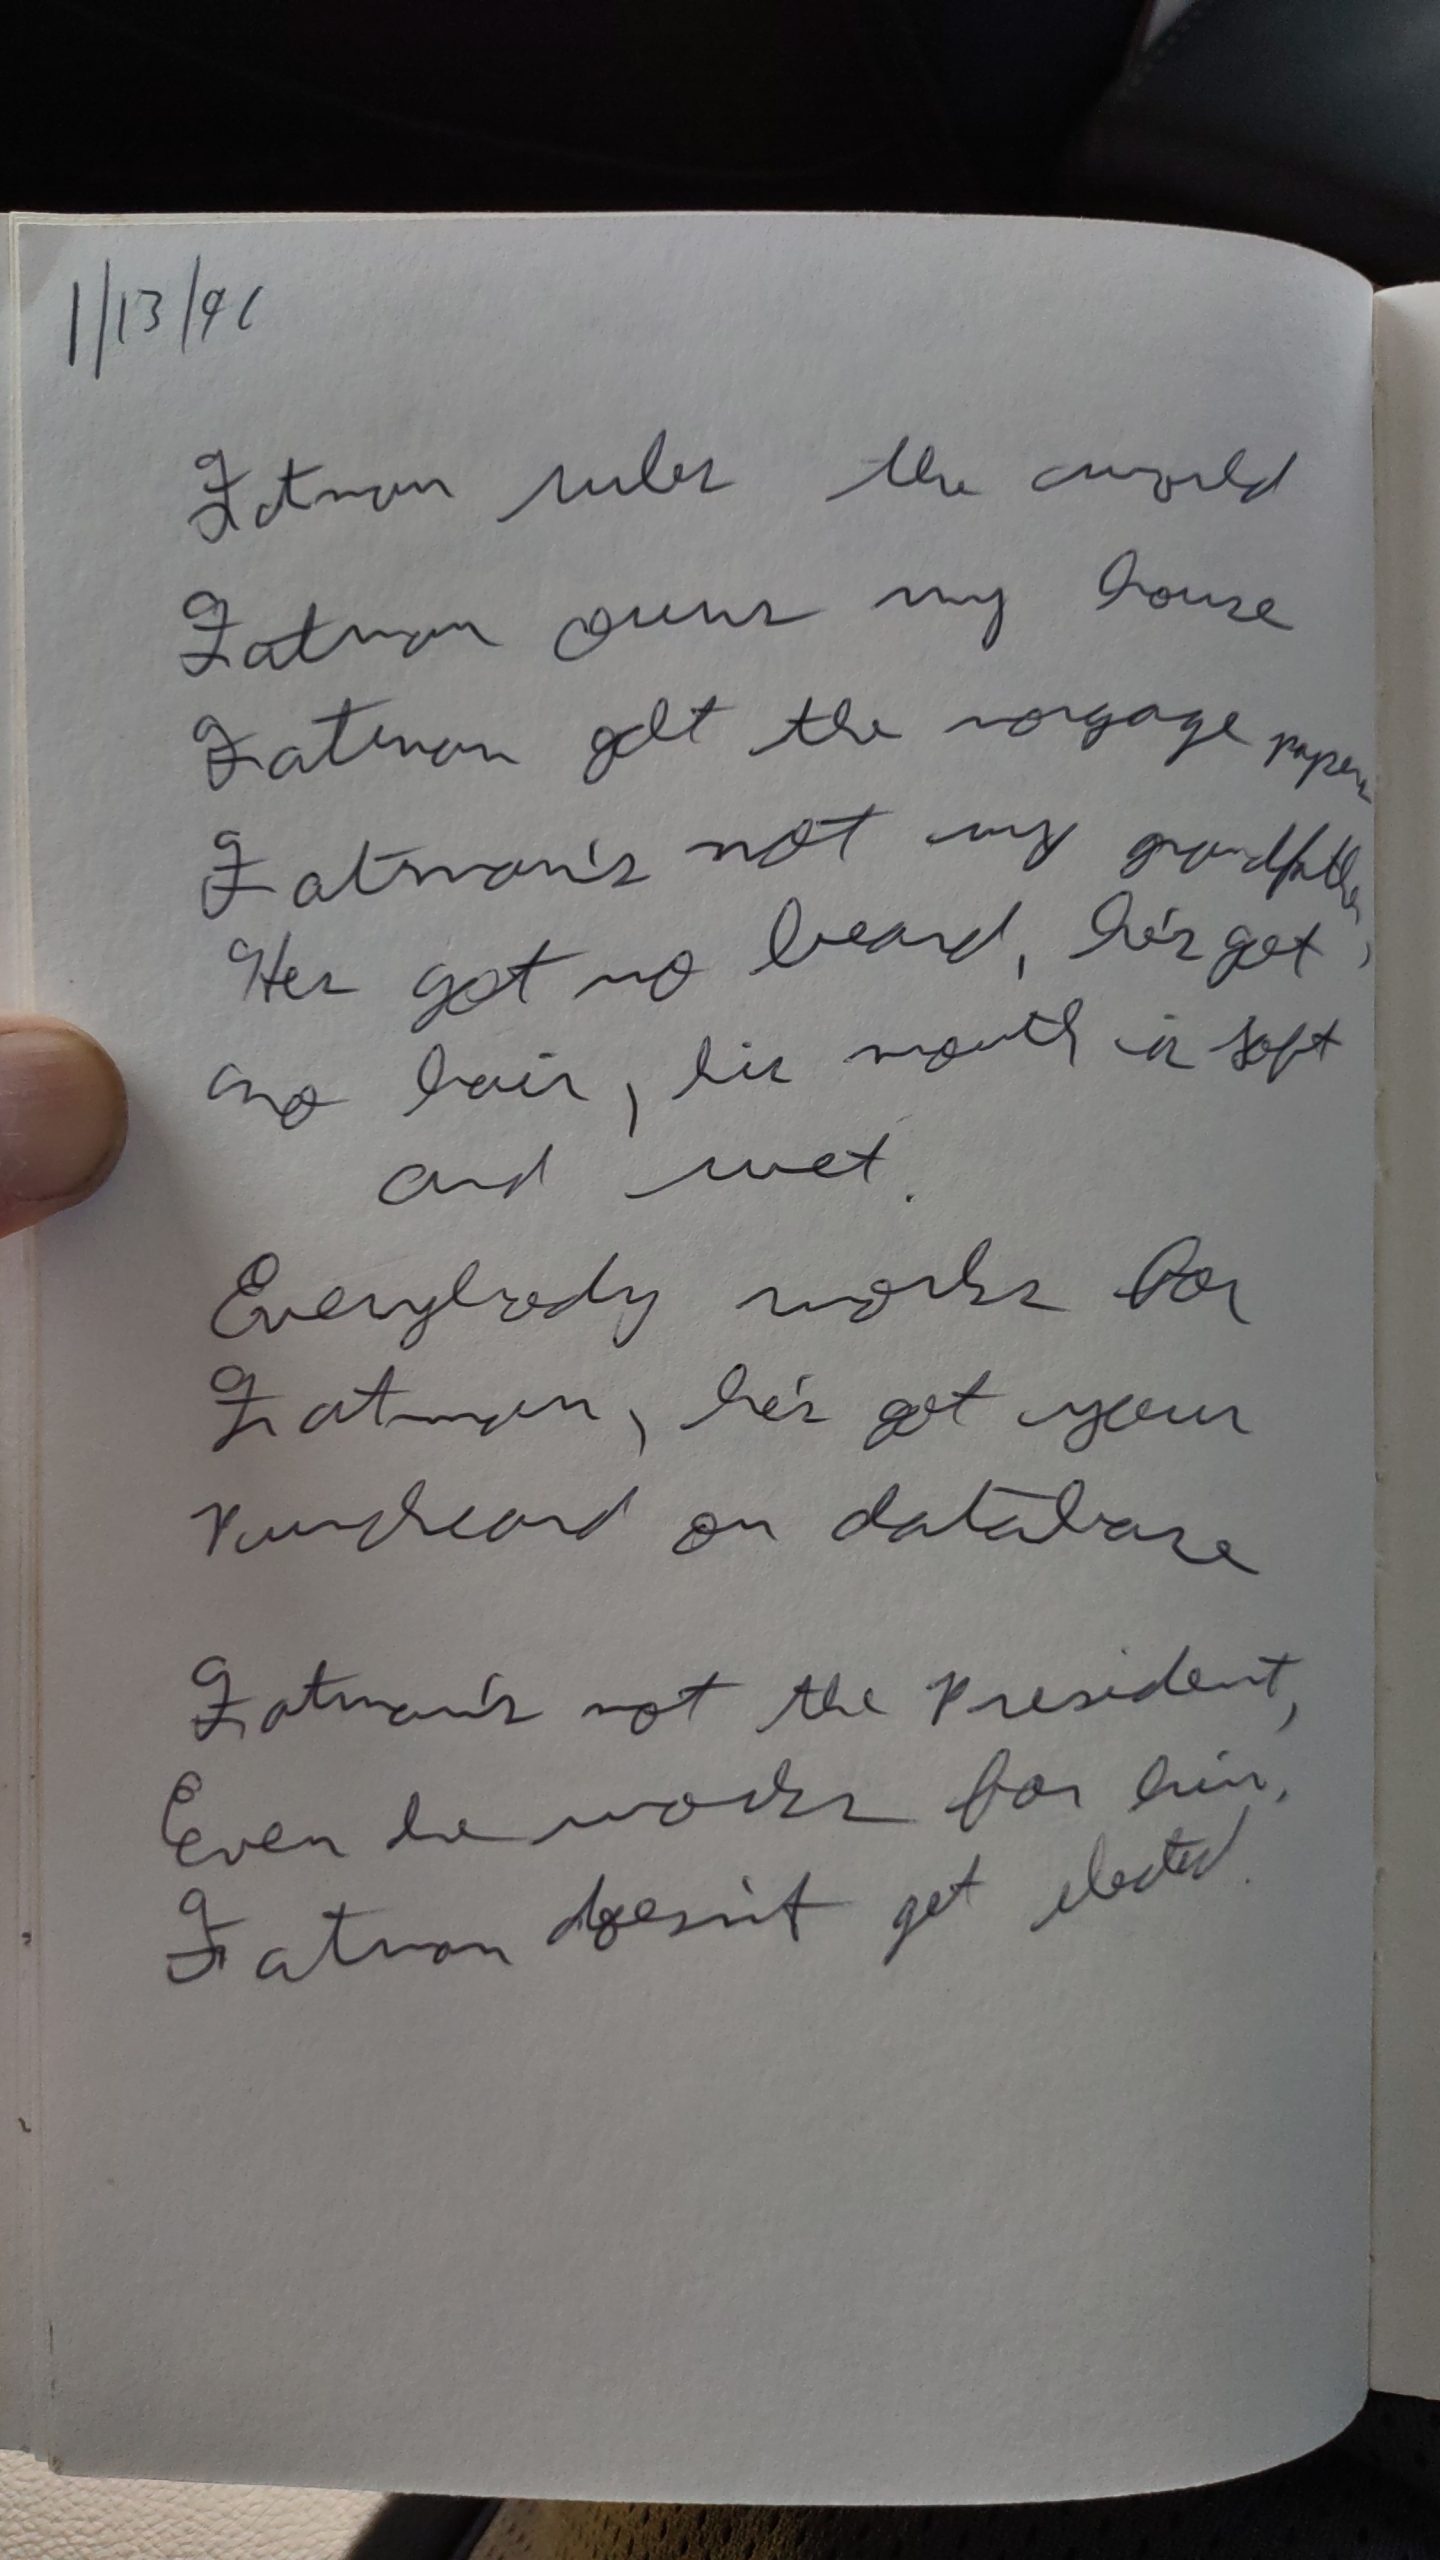 1/13/91
Fatman rules the world
Fatman owns my house
Fatman got the morgage papers
Fatman's not my grandfather,
Hes got no beard, he's got
no hair, his mouth is soft
and wet.
Everybody works for
Fatman, he's got your
Punchcard on database
Fatman's not the President,
Even he works for him.
Fatman doesn't get elected.